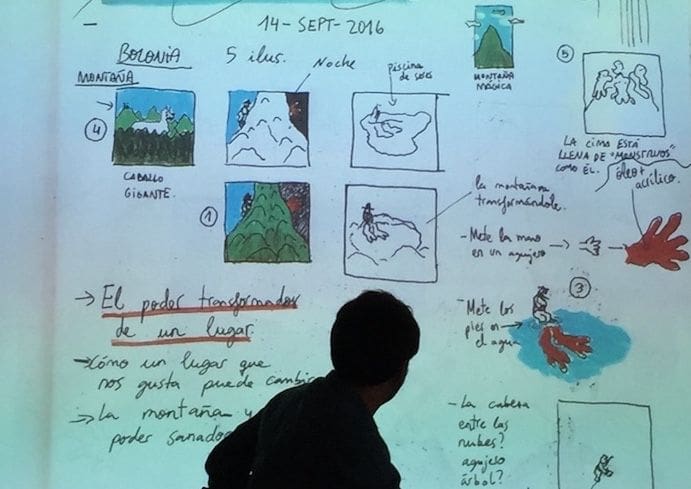 14-SEPT-2016
BOLONIA
5 ilus.
Noche
MONTAÑA
④
CABALLO
GIGANTE.
piscina
de seres
MONTAÑA
MÁGICA
⑤
LA CIMA ESTÁ
LLENA DE "MONSTRUOS"
COMO ÉL.
óleo+
acrílico.
①
la montaña
transformándole.
- Mete la mano
en un agujero
→ El poder transformador
de un lugar
→ Cómo un lugar que
nos gusta puede cambi
→ La montaña y
poder sanado
③
- Mete los
pies en
el agua
- La cabeza
entre las
nubes?
agujero
árbol?